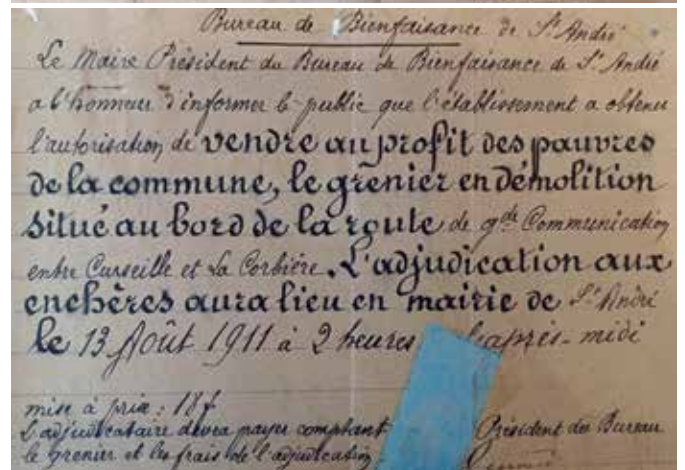 Bureau de Bienfaisance de St André
Le Maire Président du Bureau de Bienfaisance de St André
a l'honneur d'informer le public que l'établissement a obtenu
l'autorisation de vendre au profit des pauvres
de la commune, le grenier en démolition
situé au bord de la route de gde Communication
entre Curseille et La Corbière. L'adjudication aux
enchères aura lieu en mairie de St André
le 13 Août 1911 à 2 heures l'après-midi
mise à prix : 18 f
L'adjudicataire devra payer comptant Président du Bureau
le grenier et les frais de l'adjudication